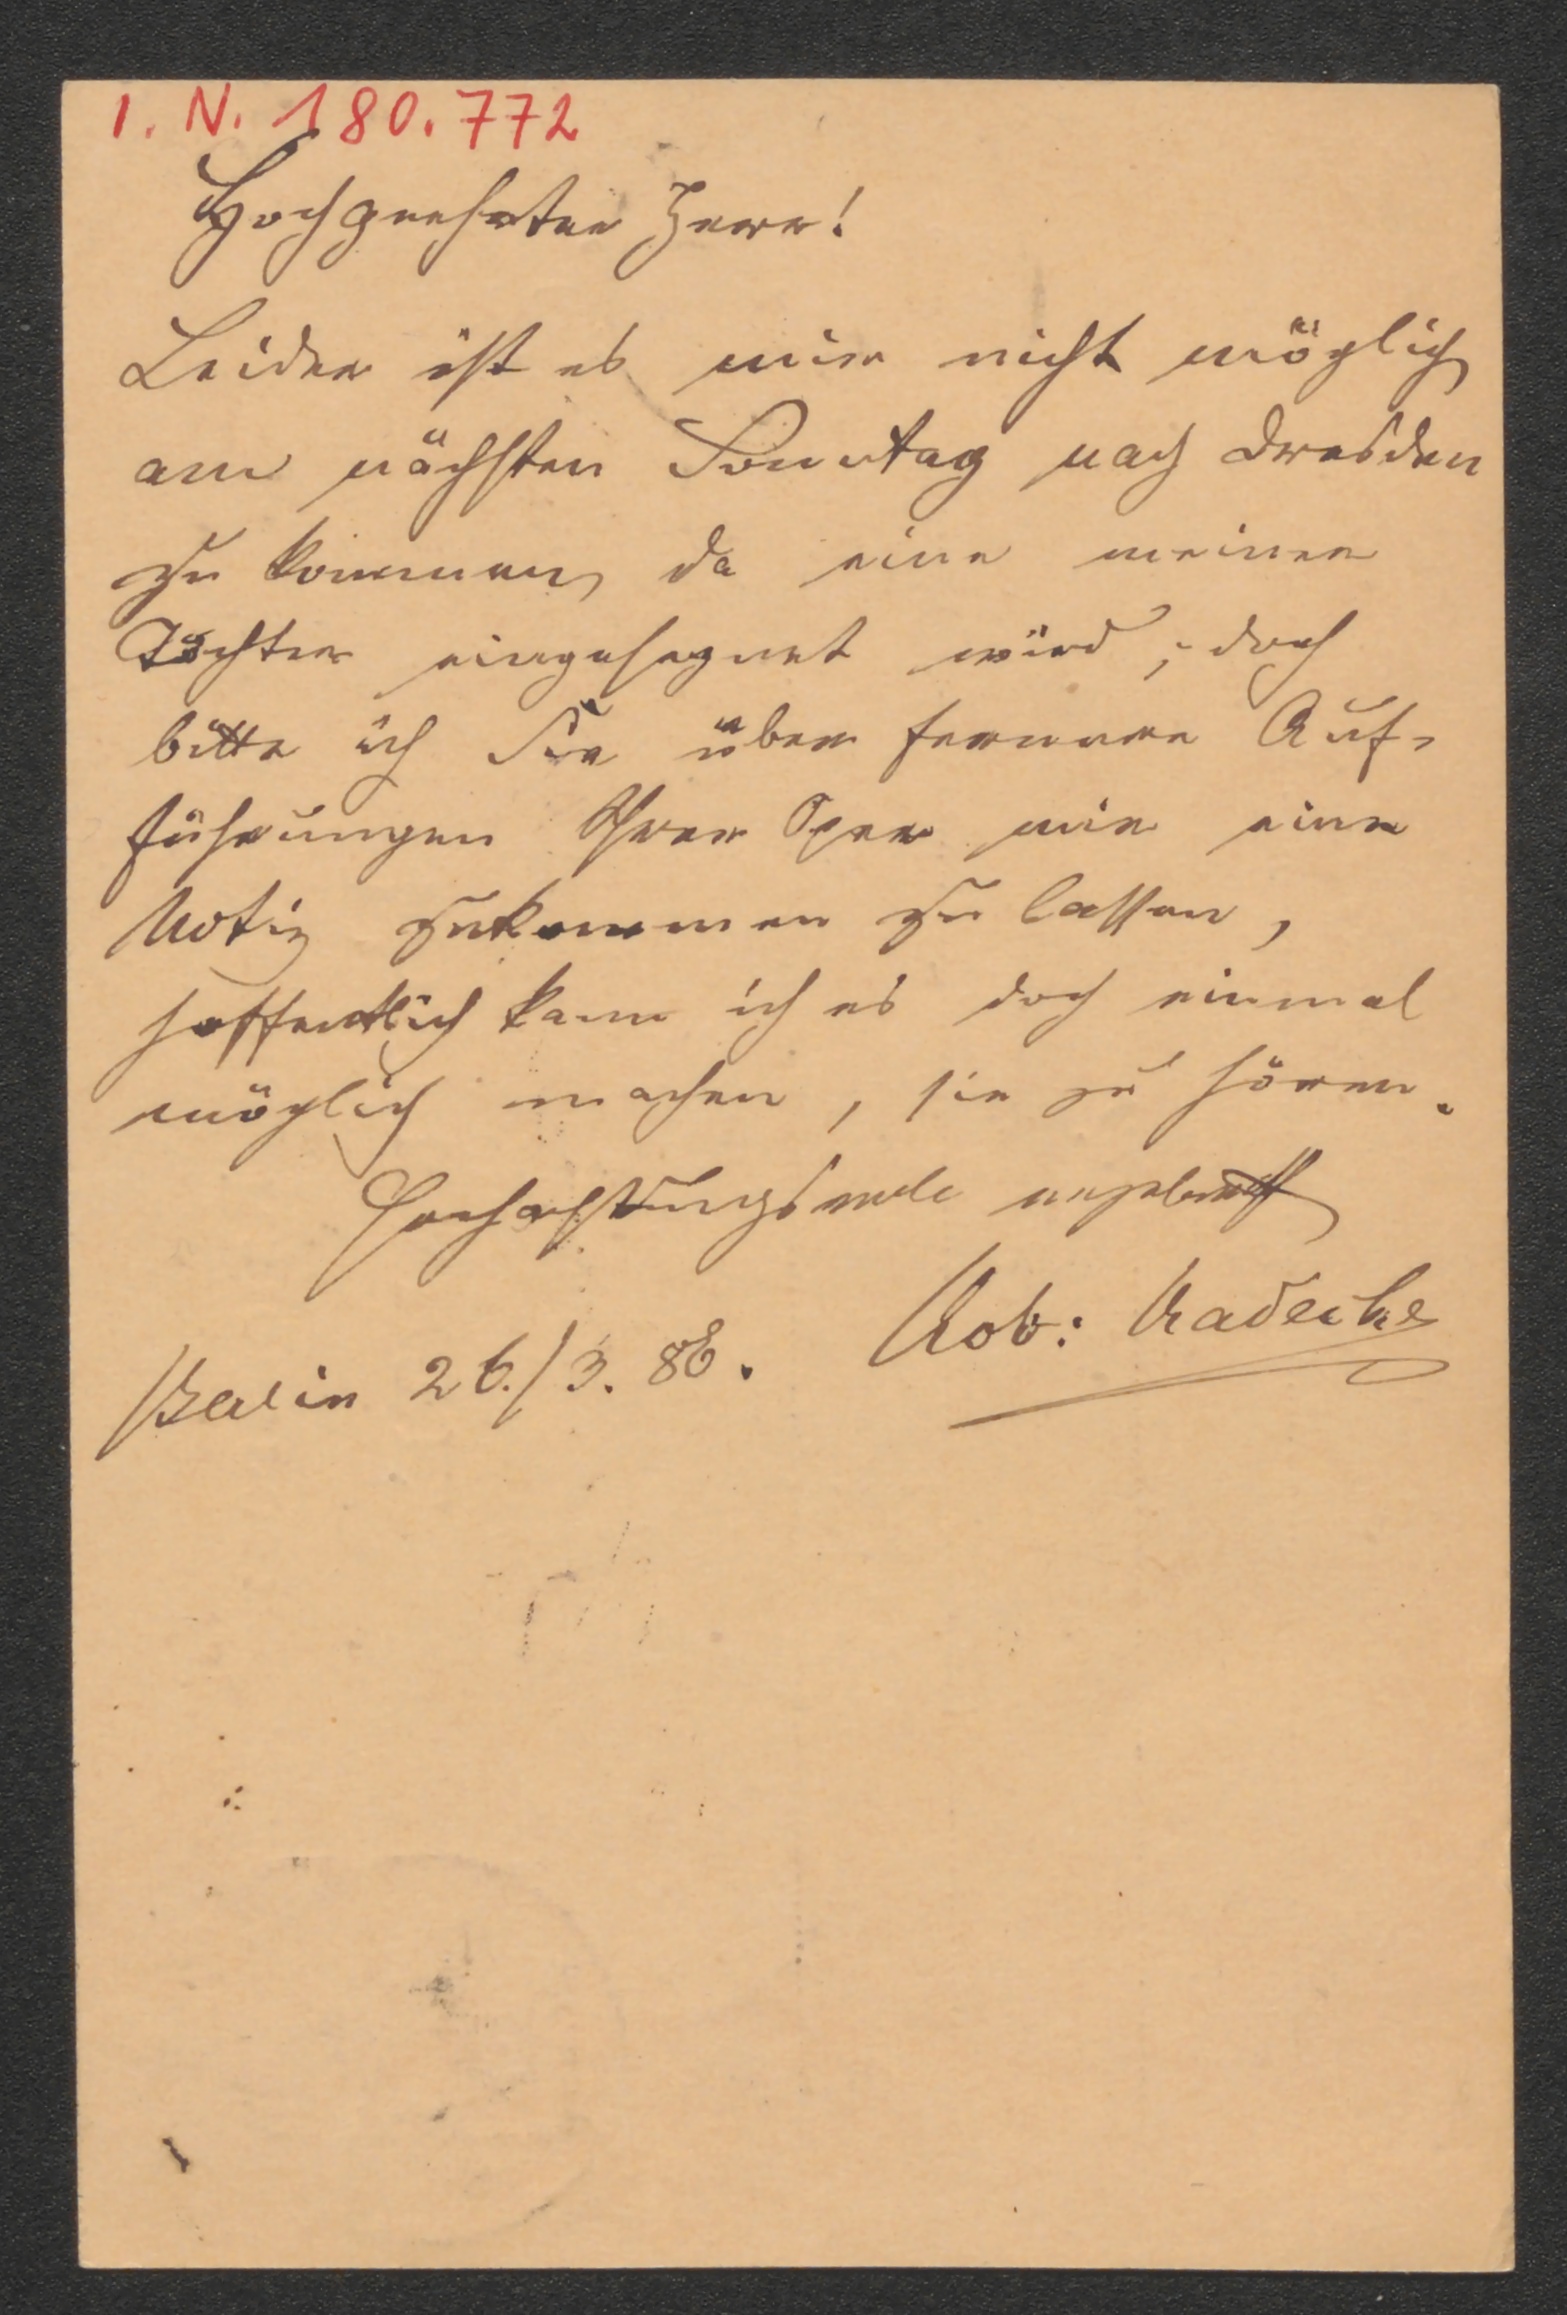 I. N. 180.772
Hochgeehrter Herr!
Leider ist es mir nicht möglich
am nächsten Sonntag nach Dresden
zu kommen, da eine meiner
Töchter eingesegnet wird; doch
bitte ich Sie über fernere Auf-
führungen Ihrer Oper mir eine
Notiz zukommen zu lassen,
hoffentlich kann ich es doch einmal
möglich machen, sie zu hören.
Hochachtungsvoll ergebenst
Rob: Radecke
Berlin 26./3. 86.